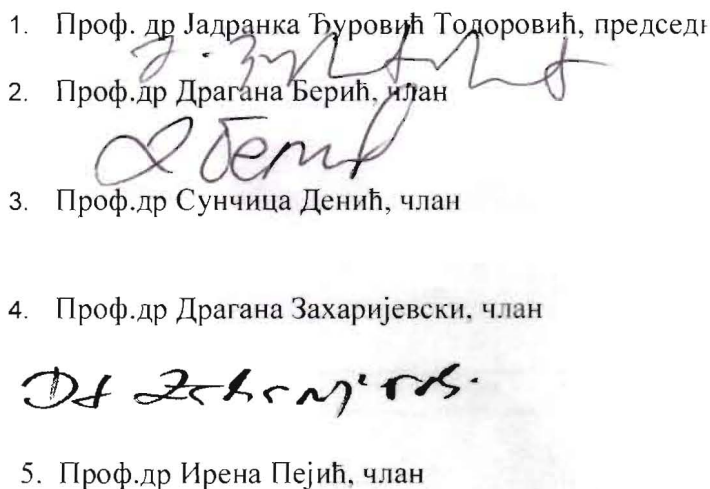 1. Проф. др Јадранка Ђуровић Тодоровић,
2. Проф.др Драгана Берић, члан
3. Проф.др Сунчица Денић, члан
4. Проф.др Драгана Захаријевски, члан
5. Проф.др Ирена Пејић, члан